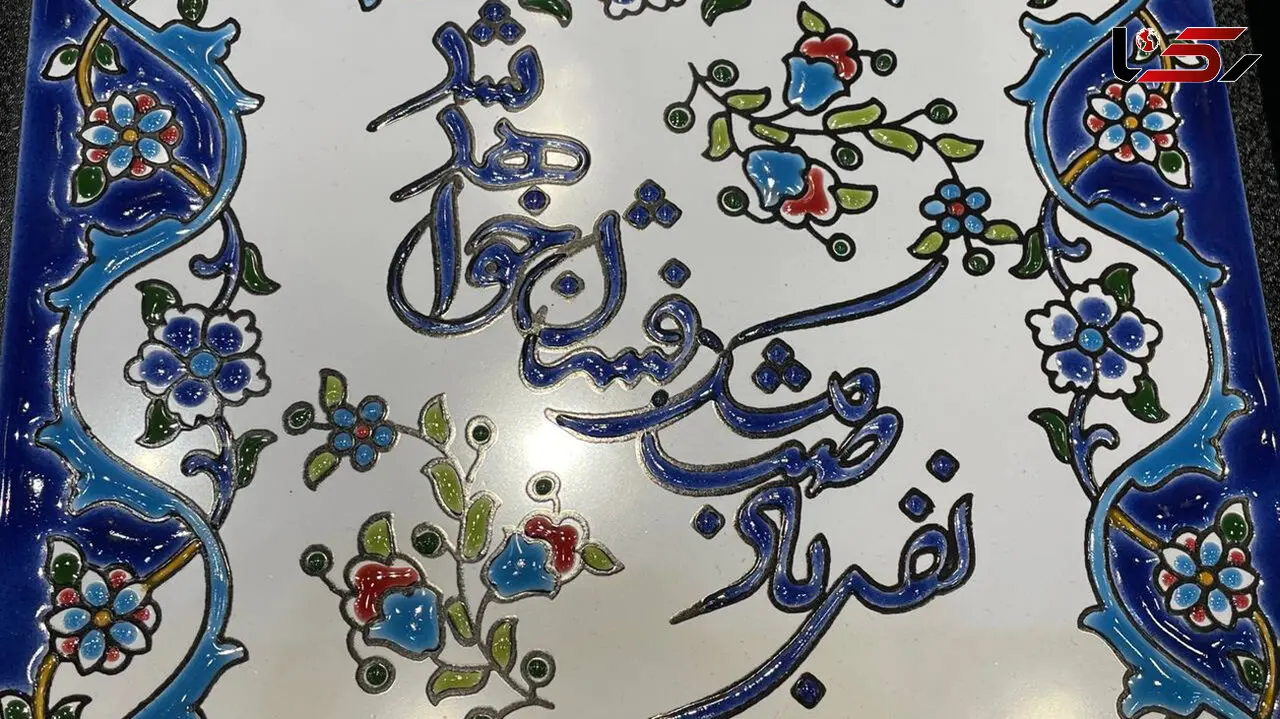 رکنا
نفس باد صبا مشک فشان خواهد شد